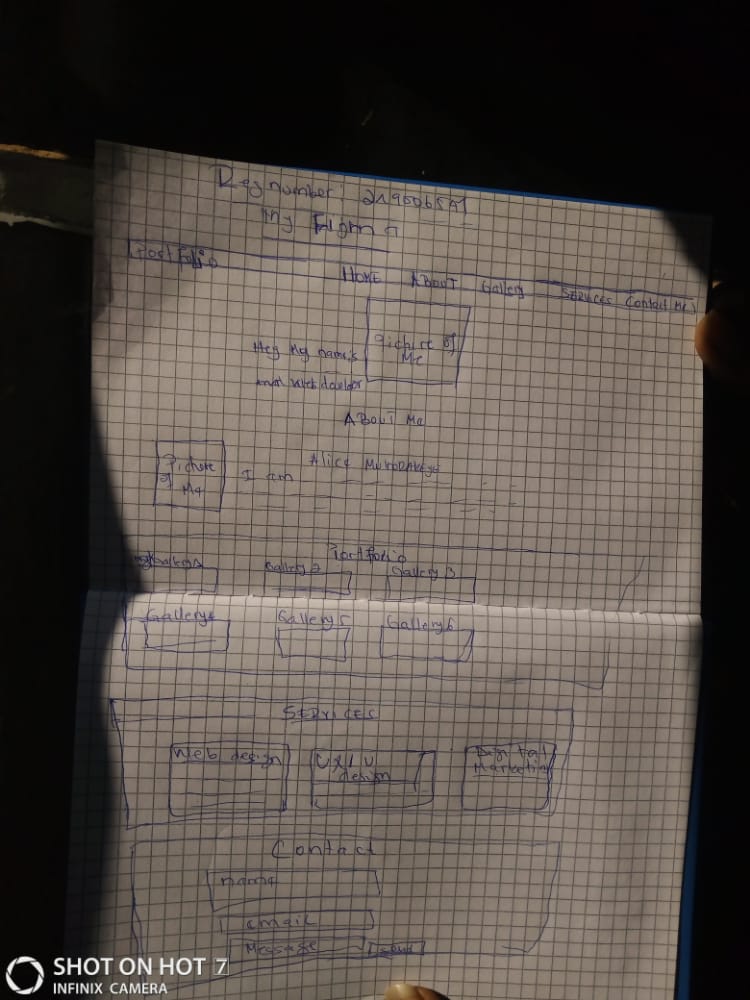 Reg number: 219006591
My Figma
Portfolio
HOME ABOUT Gallery SERVICES Contact Me
Hey My name's
Pichure of
Me
web
ABOUT Me
Pichure
of Me
I am Alice
Portfolio
Gallery 2 Gallery 3
Gallery 4 Gallery 5 Gallery 6
SERVICES
Web design
UX/U
design
Digital
Marketing
Contact
name
email
Message
Send
SHOT ON HOT 7
INFINIX CAMERA